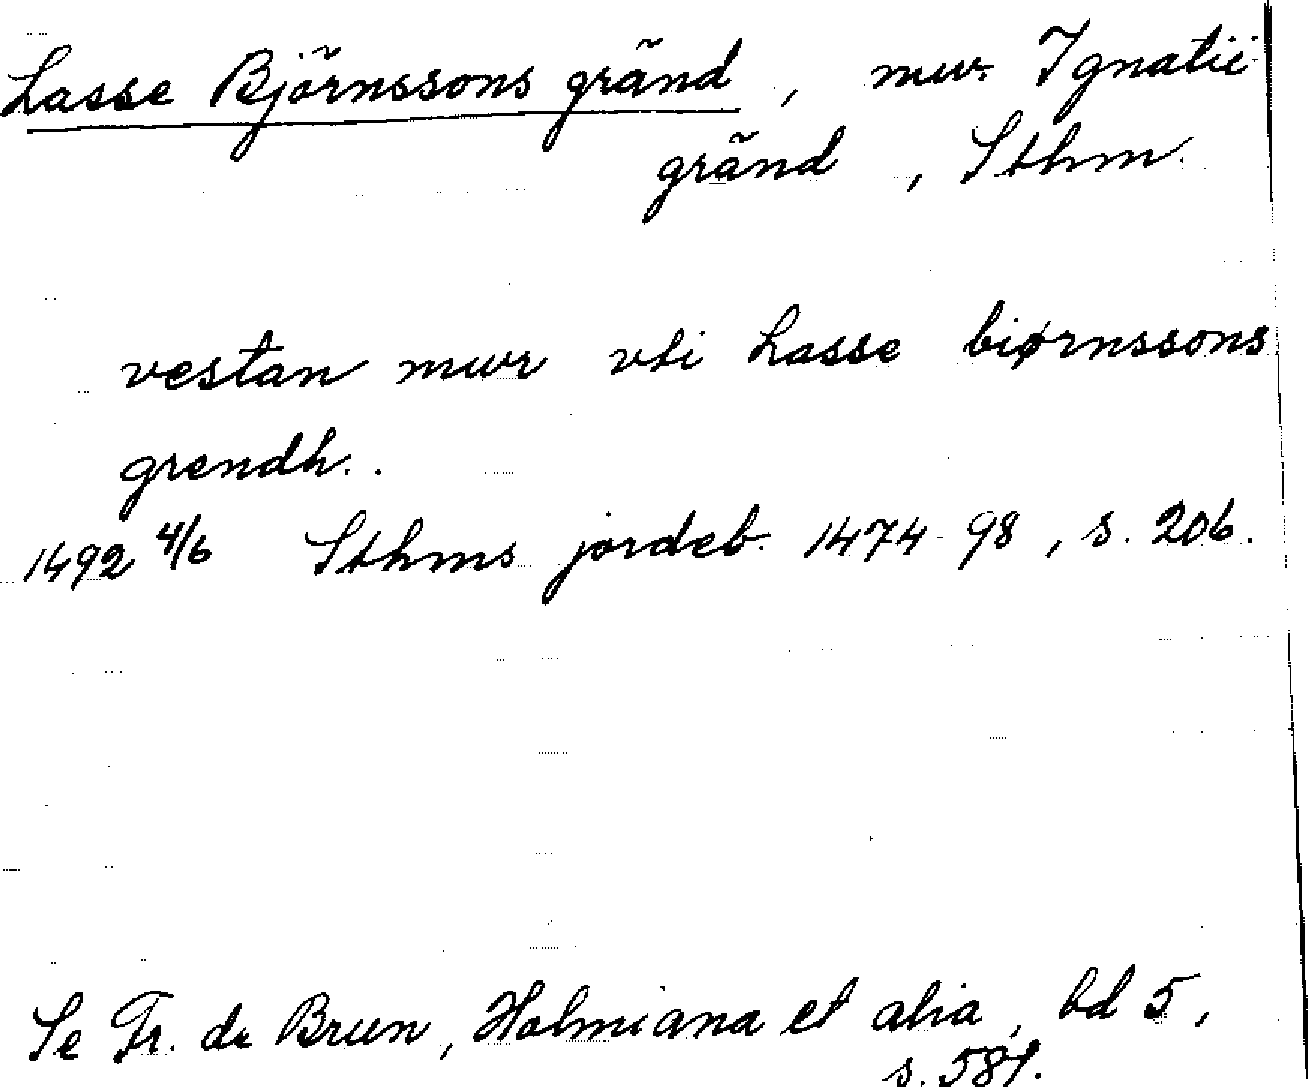 Lasse Björnssons gränd, nuv. Ignatii
gränd, Sthm.
vestan mwr vti Lasse biørnssons
grendh..
1492 4/6 Sthms jordeb. 1474-98, s. 206.
Se Fr. de Brun, Holmiana et alia, bd 5,
s. 581.